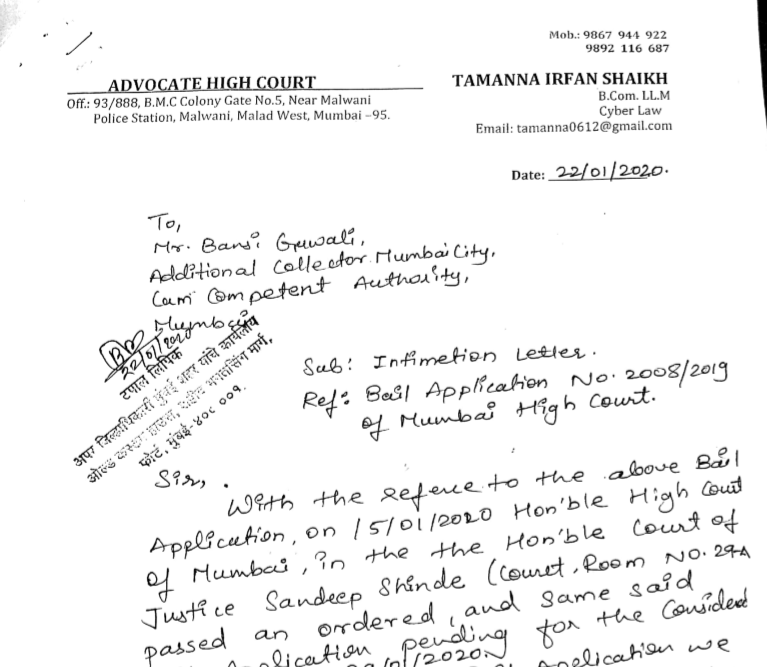 Mob.: 9867 944 922
9892 116 687
ADVOCATE HIGH COURT
Off.: 93/888, B.M.C Colony Gate No.5, Near Malwani
Police Station, Malwani, Malad West, Mumbai –95.
TAMANNA IRFAN SHAIKH
B.Com. LL.M
Cyber Law
Email: tamanna0612@gmail.com
Date: 22/01/2020.
To,
Mr. Bansi Gawali,
Additional Collector Mumbai City,
Cum Competent Authority,
Mumbai
22/01/2020
टपाल लिपिक
अपर जिल्हाधिकारी मुंबई शहर यांचे कार्यालय
ओल्ड कस्टम हाऊस, शहीद भगतसिंग मार्ग,
फोर्ट, मुंबई-४०० ००१.
Sub: Infimetion Letter.
Ref: Bail Application No. 2008/2019
of Mumbai High Court.
Sir,
With the refence to the above Bail
Application, on 15/01/2020 Hon'ble High Court
of Mumbai, in the the Hon'ble Court of
Justice Sandeep Shinde (Couret, Room NO. 29A
passed an ordered, and same said
Application pending for the Consided
/2020. Application we